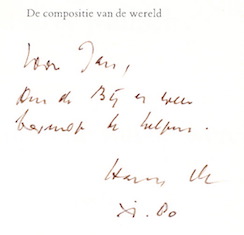 De compositie van de wereld
Voor Jan,
Om de Bij er weer
te helpen.
Harry
xi.80